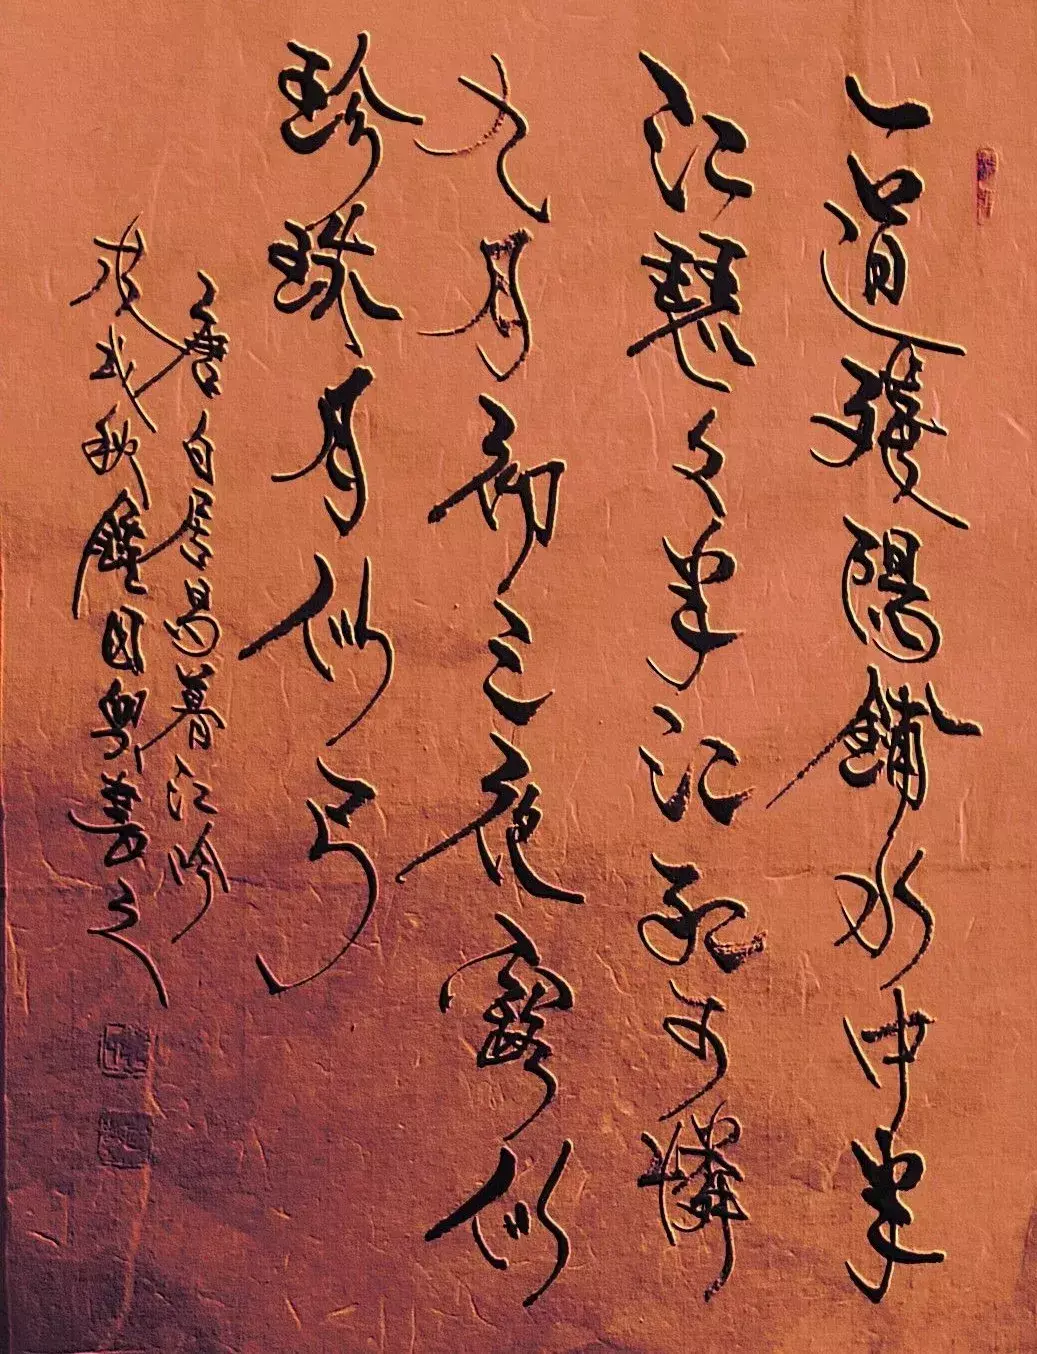 一道殘陽鋪水中半
江瑟々半江紅可憐
九月初三夜露似
珍珠月似弓
唐白居易暮江吟
戊戌秋鍾国興書之